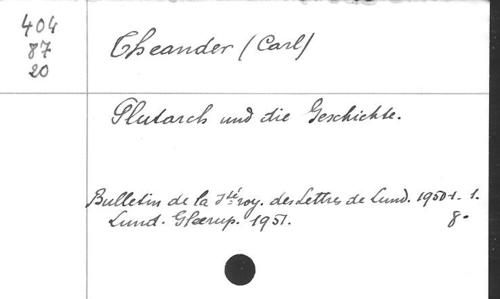 404
87
20
Theander (Carl)
Plutarch und die Geschichte.
Bulletin de la Sté roy. des Lettres de Lund. 1950-1. 1.
Lund. Gleerup. 1951. 8°